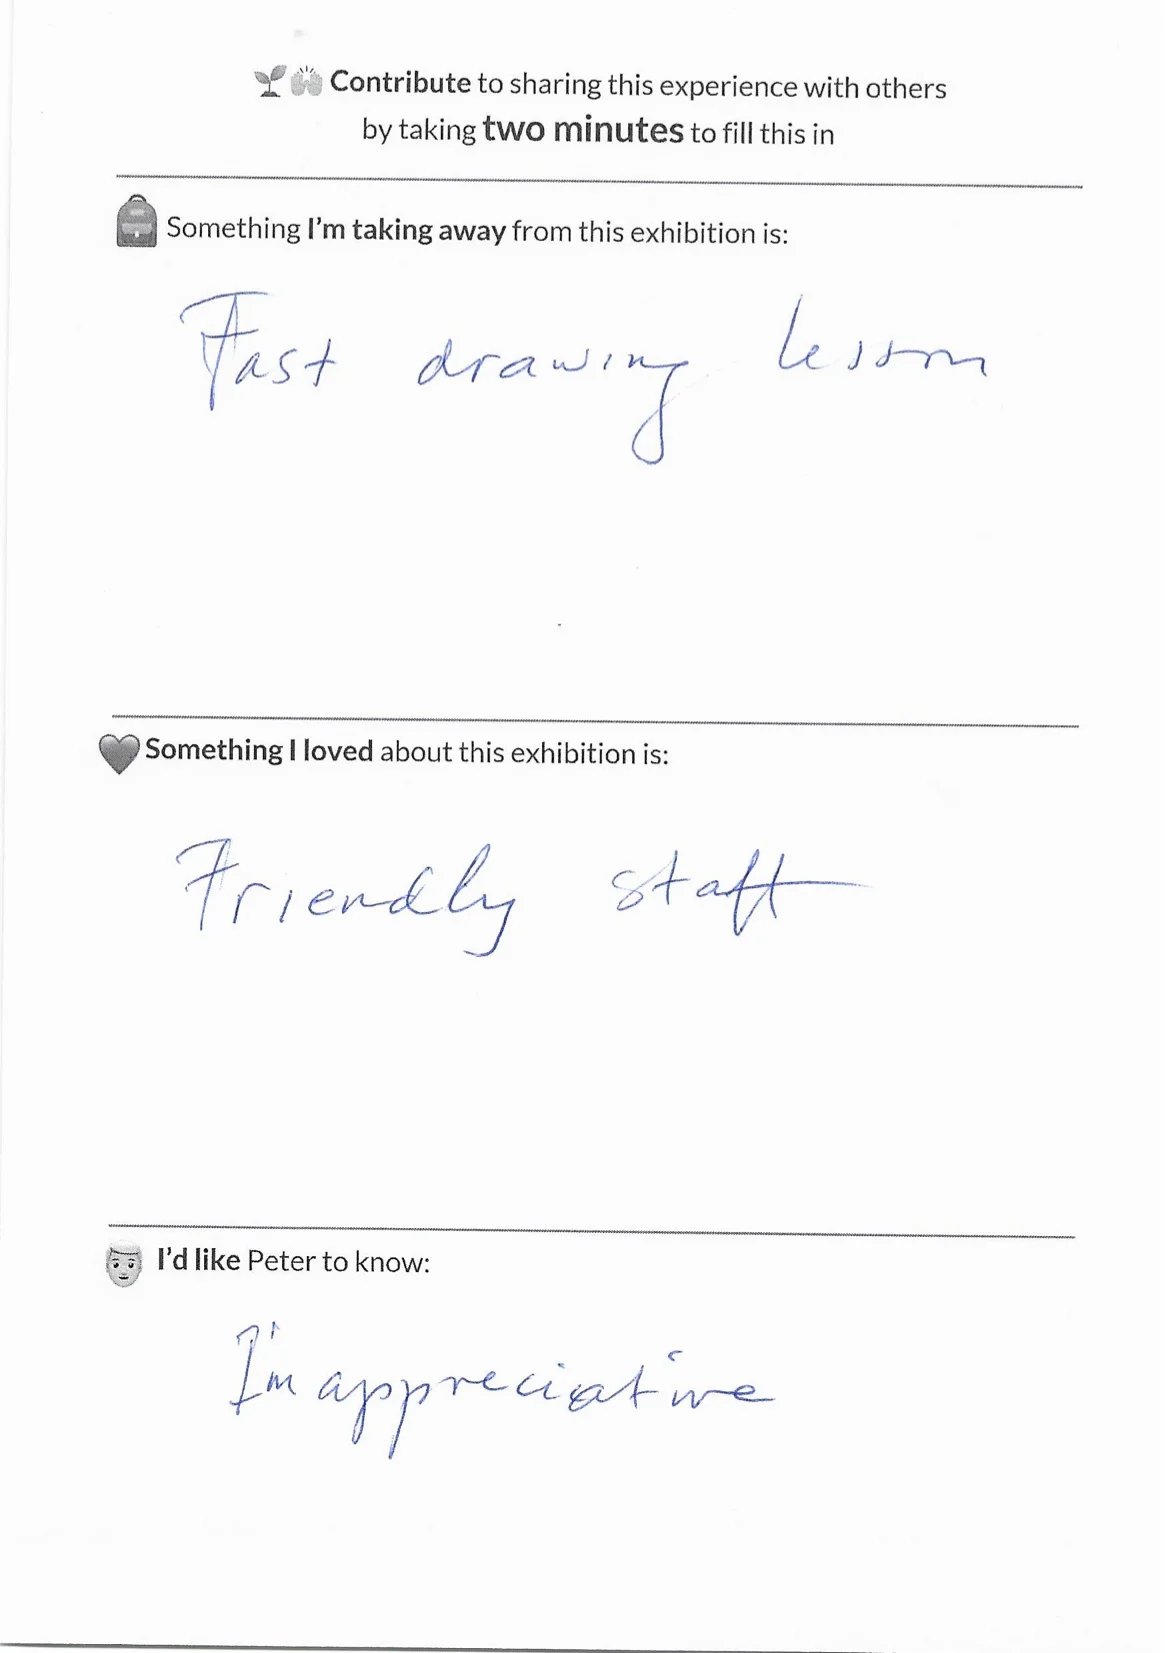 🌱🙌 Contribute to sharing this experience with others
by taking two minutes to fill this in
🎒 Something I'm taking away from this exhibition is:
Fast drawing lesson
🖤 Something I loved about this exhibition is:
Friendly staff
I'd like Peter to know:
I'm appreciative